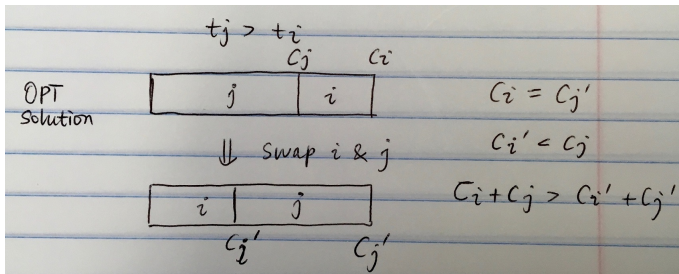 tj > ti
Cj Ci
OPT
Solution
j i
Ci = Cj'
Ci' < Cj
⇓ Swap i & j
Ci + Cj > Ci' + Cj'
i j
Ci' Cj'